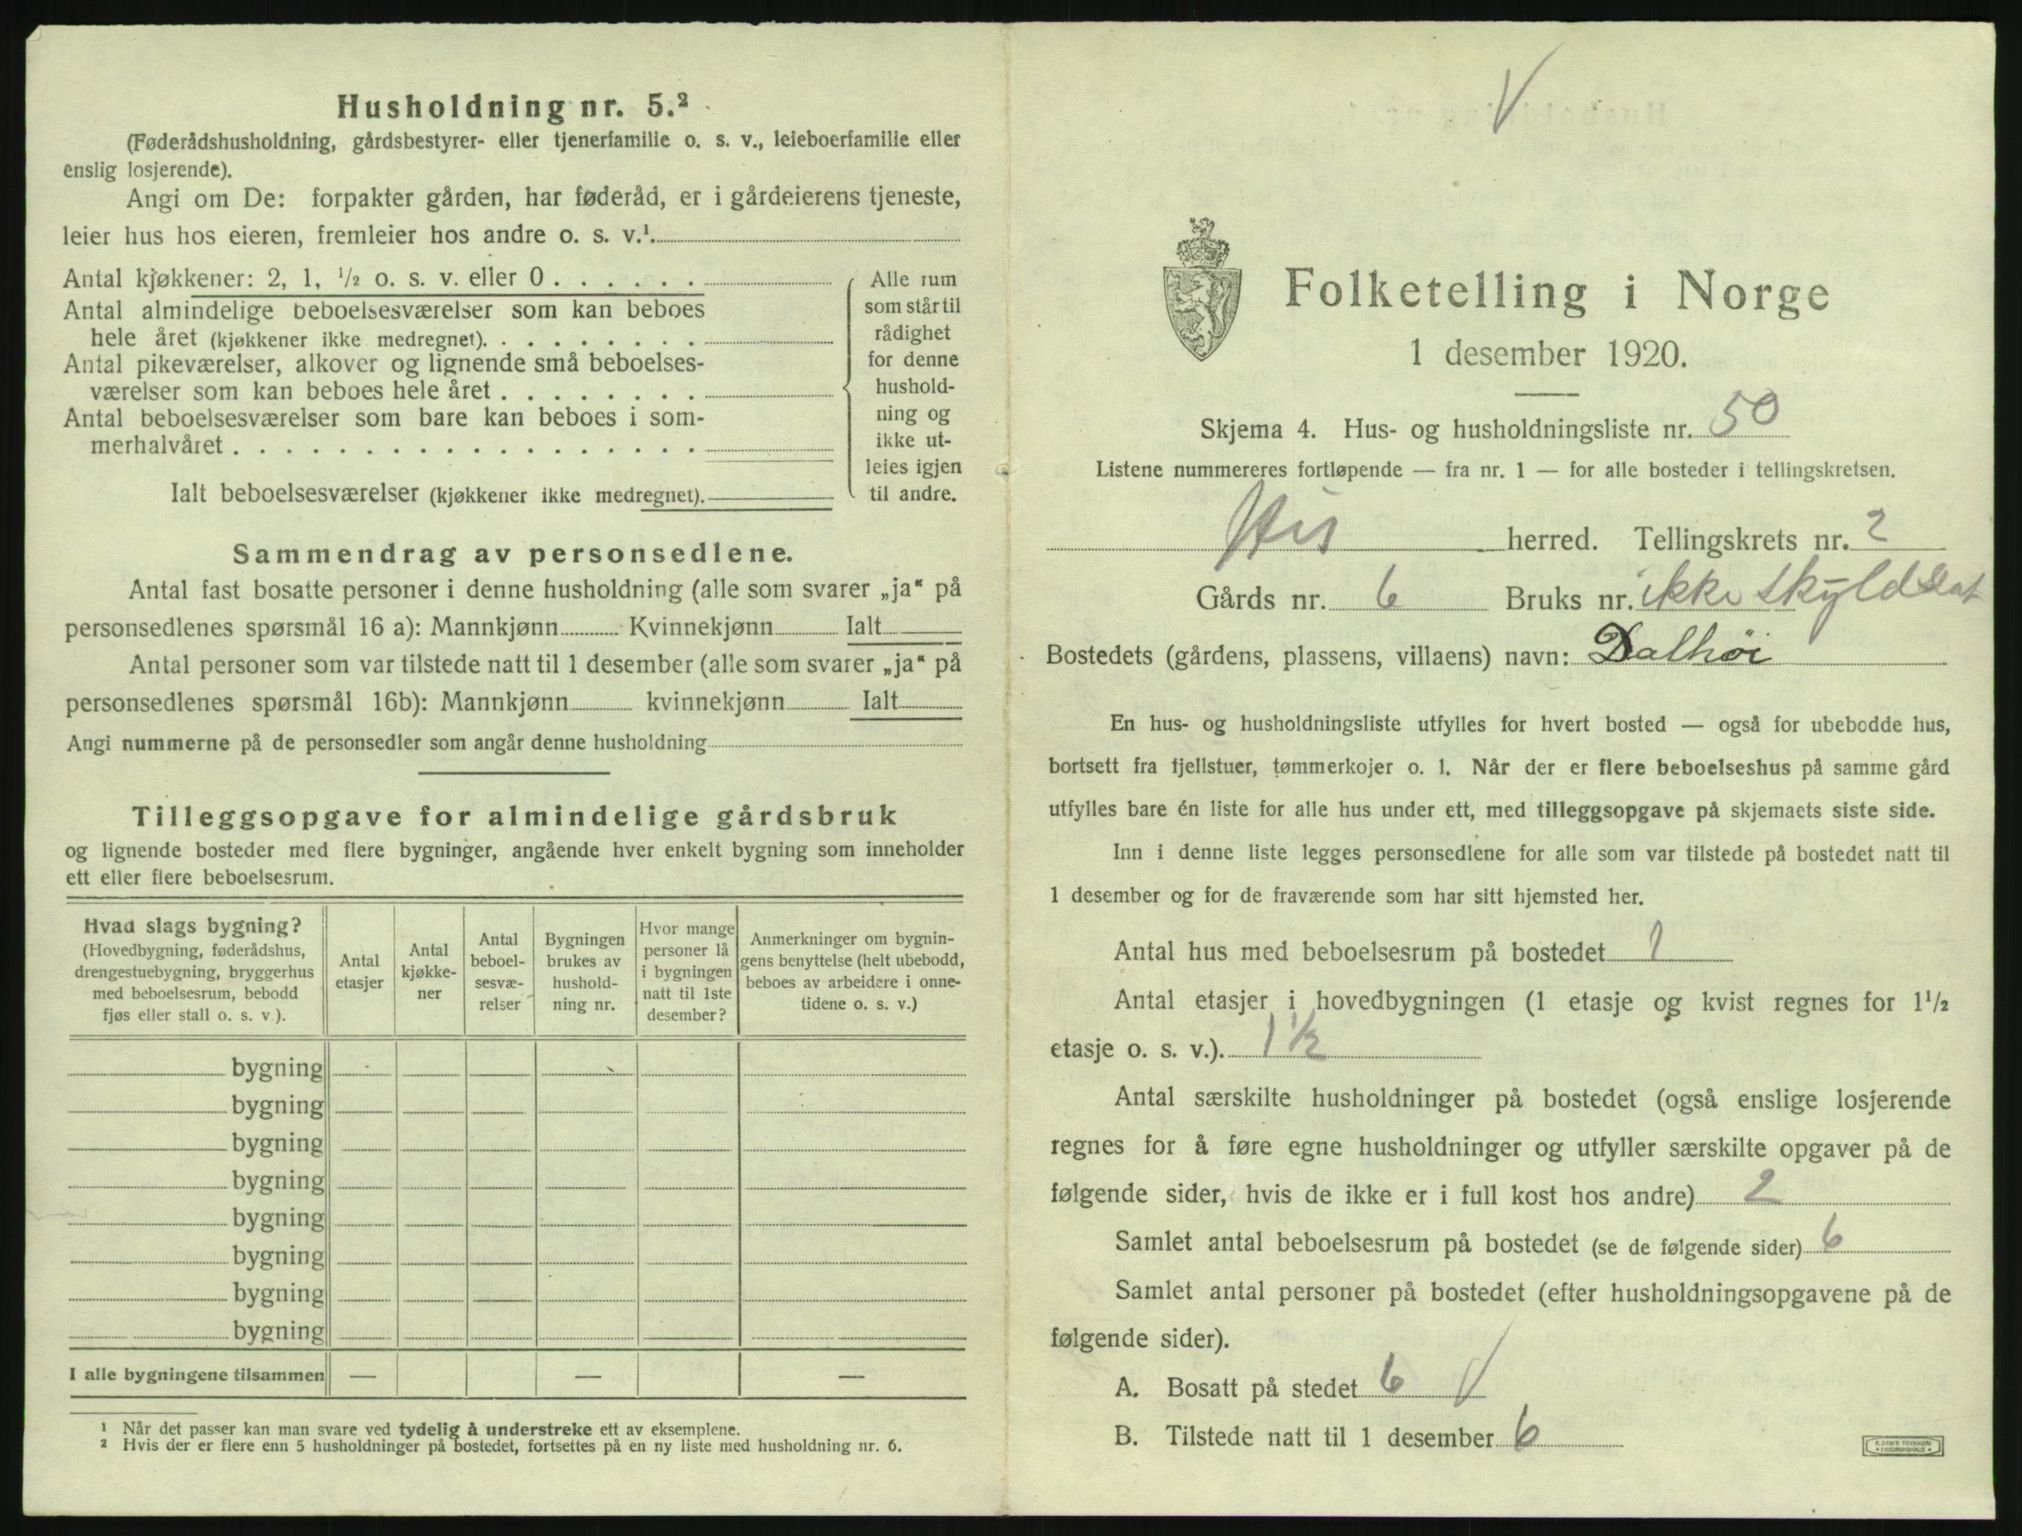 Husholdning nr. 5.²
(Føderådshusholdning, gårdsbestyrer- eller tjenerfamilie o. s. v., leieboerfamilie eller
enslig losjerende).
Angi om De: forpakter gården, har føderåd, er i gårdeierens tjeneste,
leier hus hos eieren, fremleier hos andre o. s. v.¹.
Antal kjøkkener: 2, 1, ½ o. s. v. eller 0 . . . . . .
Antal almindelige beboelsesværelser som kan beboes
hele året (kjøkkener ikke medregnet). . . . . . . . .
Antal pikeværelser, alkover og lignende små beboelses-
værelser som kan beboes hele året . . . . . . . .
Antal beboelsesværelser som bare kan beboes i som-
merhalvåret . . . . . . . . . . . . . . . . . .
Ialt beboelsesværelser (kjøkkener ikke medregnet).
Alle rum
som står til
rådighet
for denne
hushold-
ning og
ikke ut-
leies igjen
til andre.
Sammendrag av personsedlene.
Antal fast bosatte personer i denne husholdning (alle som svarer „ja“ på
personsedlenes spørsmål 16 a): Mannkjønn Kvinnekjønn Ialt
Antal personer som var tilstede natt til 1 desember (alle som svarer „ja“ på
personsedlenes spørsmål 16b): Mannkjønn kvinnekjønn Ialt
Angi nummerne på de personsedler som angår denne husholdning
Tilleggsopgave for almindelige gårdsbruk
og lignende bosteder med flere bygninger, angående hver enkelt bygning som inneholder
ett eller flere beboelsesrum.
Hvad slags bygning?
(Hovedbygning, føderådshus,
drengestuebygning, bryggerhus
med beboelsesrum, bebodd
fjøs eller stall o. s. v.).
Antal
etasjer
Antal
kjøkke-
ner
Antal
beboel-
sesvæ-
relser
Bygningen
brukes av
hushold-
ning nr.
Hvor mange
personer lå
i bygningen
natt til 1ste
desember?
Anmerkninger om bygnin-
gens benyttelse (helt ubebodd,
beboes av arbeidere i onne-
tidene o. s. v.)
bygning
bygning
bygning
bygning
bygning
bygning
bygning
bygning
I alle bygningene tilsammen — — —
¹ Når det passer kan man svare ved tydelig å understreke ett av eksemplene.
² Hvis der er flere enn 5 husholdninger på bostedet, fortsettes på en ny liste med husholdning nr. 6.
Folketelling i Norge
1 desember 1920.
Skjema 4. Hus- og husholdningsliste nr. 50
Listene nummereres fortløpende — fra nr. 1 — for alle bosteder i tellingskretsen.
His herred. Tellingskrets nr. 2
Gårds nr. 6 Bruks nr. ikke skyldsat
Bostedets (gårdens, plassens, villaens) navn: Dalhøi
En hus- og husholdningsliste utfylles for hvert bosted — også for ubebodde hus,
bortsett fra fjellstuer, tømmerkojer o. l. Når der er flere beboelseshus på samme gård
utfylles bare én liste for alle hus under ett, med tilleggsopgave på skjemaets siste side.
Inn i denne liste legges personsedlene for alle som var tilstede på bostedet natt til
1 desember og for de fraværende som har sitt hjemsted her.
Antal hus med beboelsesrum på bostedet 1
Antal etasjer i hovedbygningen (1 etasje og kvist regnes for 1½
etasje o. s. v.). 1½
Antal særskilte husholdninger på bostedet (også enslige losjerende
regnes for å føre egne husholdninger og utfyller særskilte opgaver på de
følgende sider, hvis de ikke er i full kost hos andre) 2
Samlet antal beboelsesrum på bostedet (se de følgende sider) 6
Samlet antal personer på bostedet (efter husholdningsopgavene på de
følgende sider).
A. Bosatt på stedet 6
B. Tilstede natt til 1 desember 6